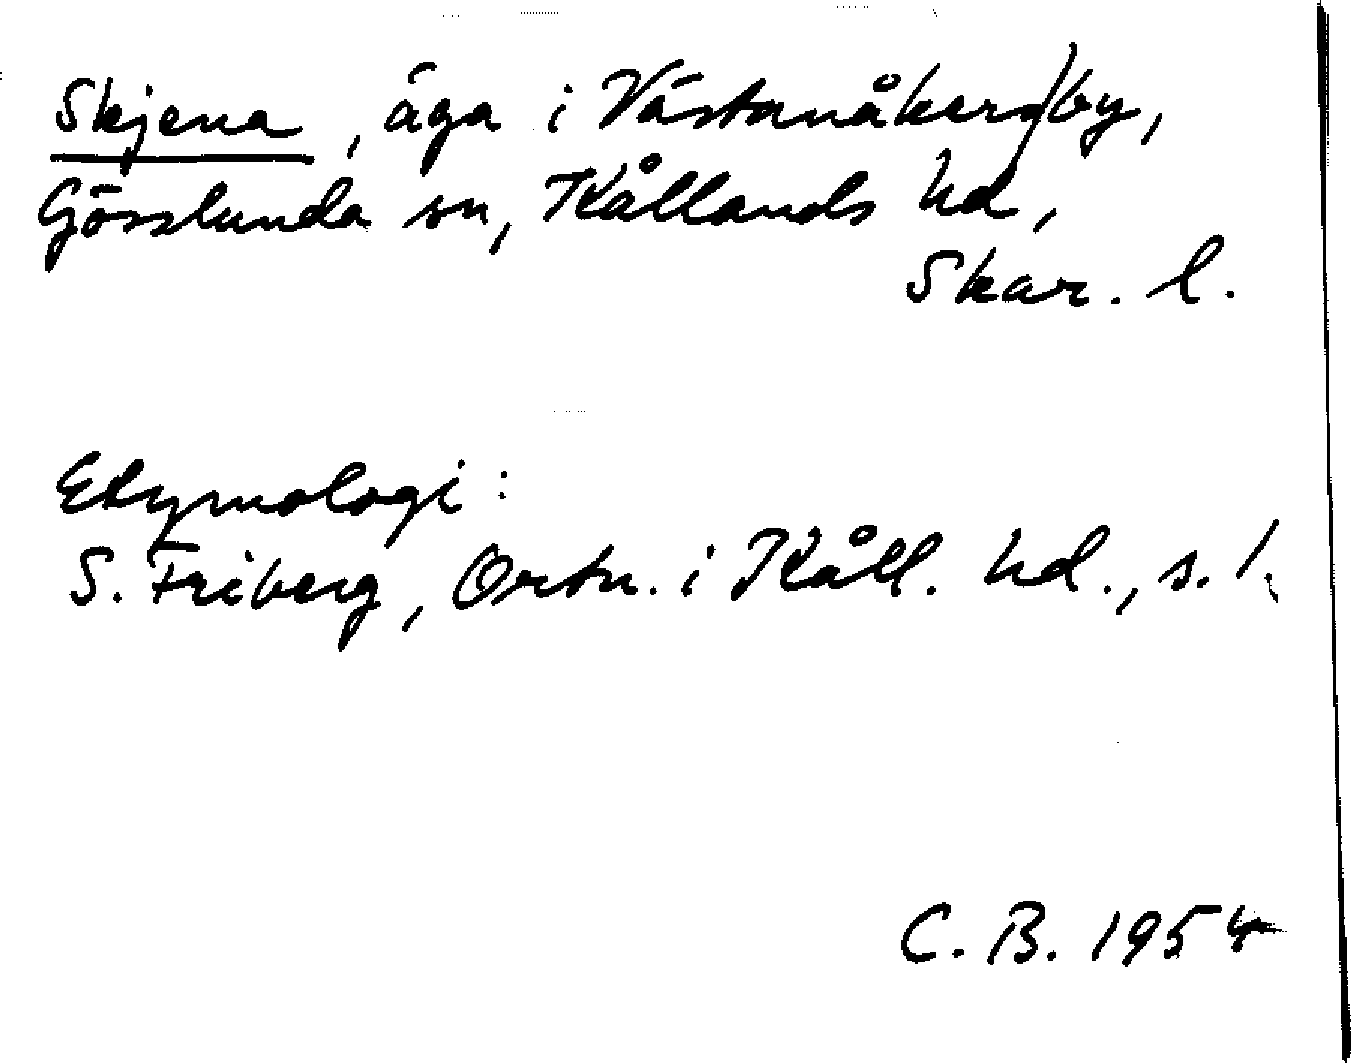 Skjena, äga i Västanåker/by,
Gösslunda sn, Kållands hd,
Skar. l.
Etymologi:
S. Friberg, Ortn. i Kåll. hd., s. 1.
C. B. 1954